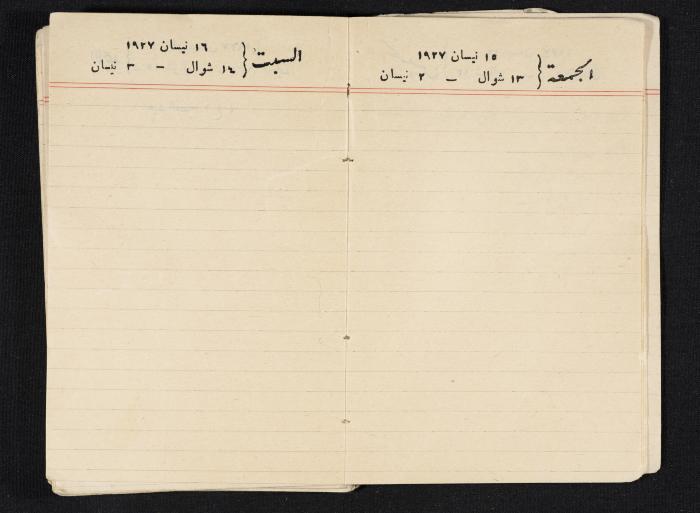 الجمعة { ١٥ نيسان ١٩٢٧
١٣ شوال – ٢ نيسان
السبت { ١٦ نيسان ١٩٢٧
١٤ شوال – ٣ نيسان